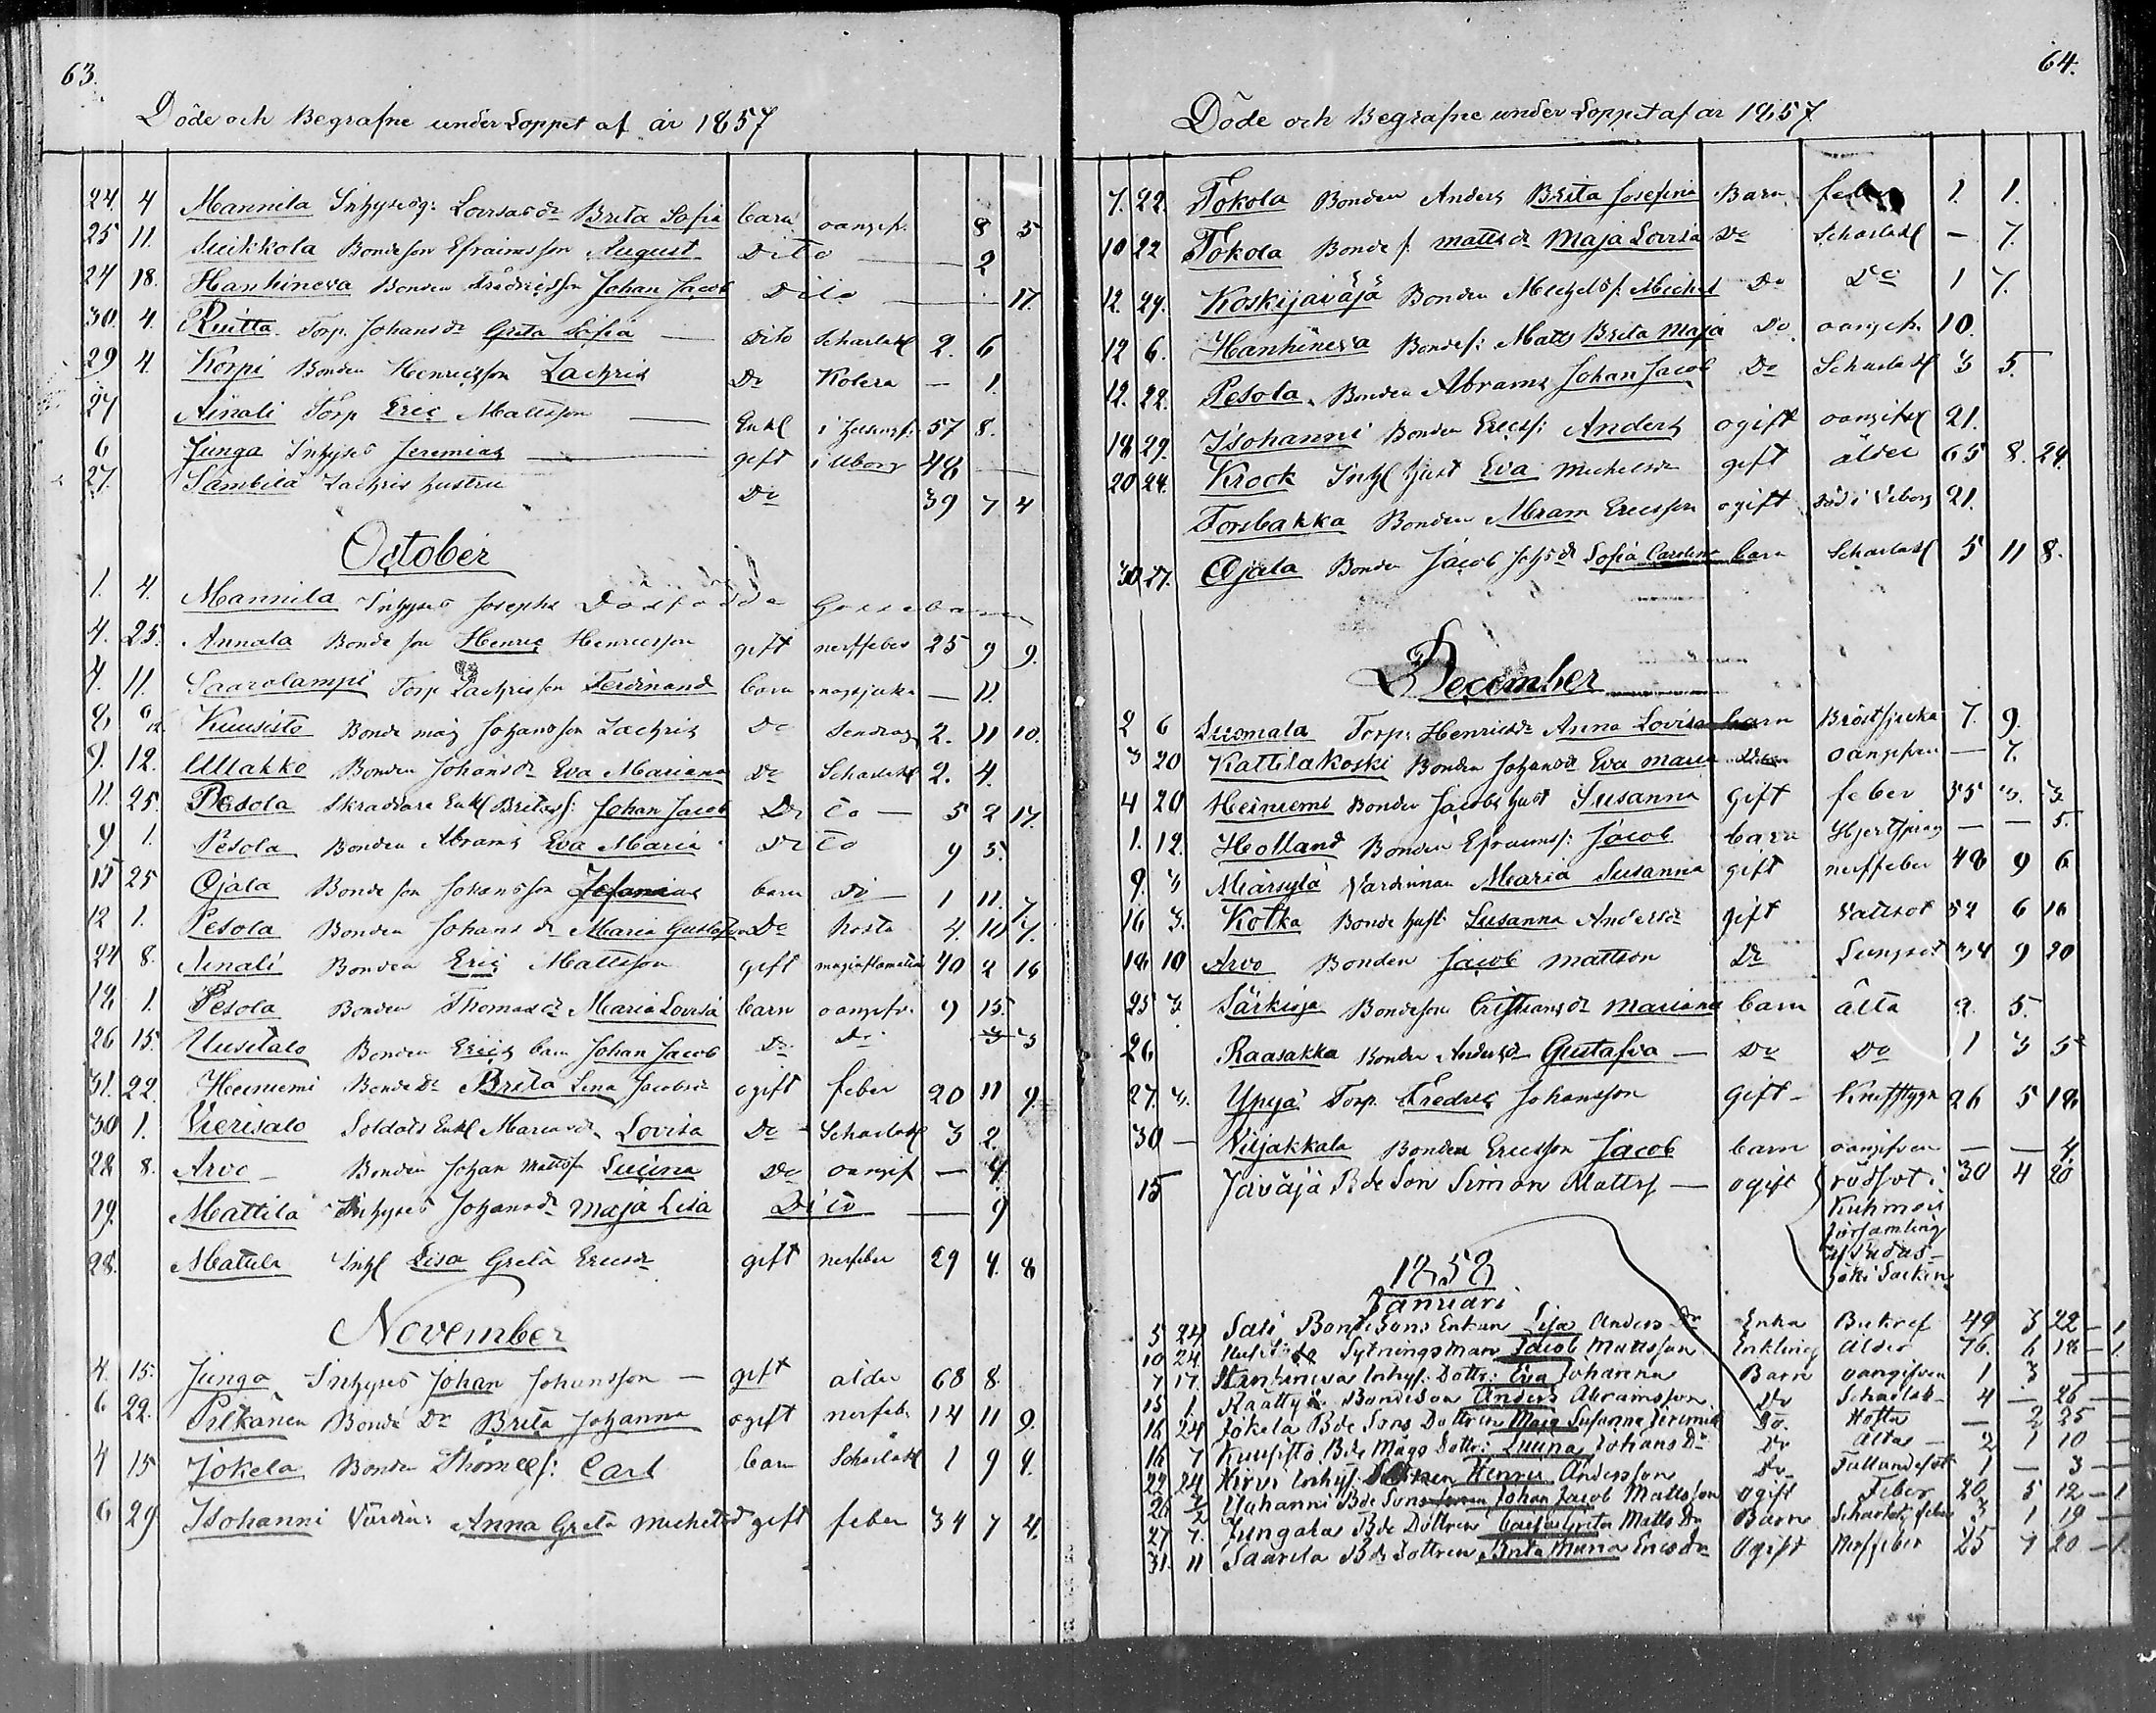 63.
Döde och Begrafne under Loppet af år 1857
24. 4 Mannila Inhyses Lovisas dr Brita Sofia barn oangif. 8 5
25 11. Bondeson Efraimsson August Dito — 2
24 18. Hanhineva Bonden Fredricsson Johan Jacob Dito — 17.
30. 4. Ruitta Torp. Johans dr Greta Sofia — dito Scharlakf 2. 6
29 4. Korpi Bonden Henricsson Zachris Do Kolera — 1.
27 Ainali Torp Eric Mattsson — Enkl i 57 8.
6 Junga Inhyses Jeremias — gift i Uborg 48 —
27. Sämbilä Zachris hustru Do 39 7 4
October
1. 4. Mannila Inhyses Josephs Dödfödda Gossebarn
4. 25. Annala Bonde son Henric Henricsson gift nerffeber 25 9 9.
4. 11. Saarolampi Torp Zachrisson Ferdinand barn magsjuka — 11.
8 Kuusisto Bonde måg Johansson Zachris Do Sendrag 2. 11 10.
9. 12. Ullakko Bonden Johans dr Eva Mariana Do Scharlakf 2. 4.
11. 25. Pesola Skraddare Enkl Britas s: Johan Jacob Di to — 5 2 17.
9 1. Pesola Bonden Abrams Eva Maria Di to 9 5.
15 25 Ojala Bonde son Johansson barn Di 1 11. 7
12 1. Pesola Bonden Johans dr Maria Gustafva Do Hosta 4. 10 7.
24 8. Ainali Bonden Eric Mattsson gift maginflamation 40 2 16
12. 1. Pesola Bonden Thomas dr Maria Lovisa barn oangifv. 9 15.
26 15. Uusitalo Bonden Erics barn Johan Jacob Do Do 3 3
31. 22. Heiniemi Bonde Dr Brita Lena Jacobsdr ogift feber 20 11 9.
30 1. Vierisalo Soldats Enkl Marias dr Lovisa Do Scharlakf 3 2
28 8. Arvo Bonden Johan Mattss Luiina Do oangif — 4
19. Mattila Inhyses Johans dr Maja Lisa Dito — 9
28. Mattila Inhl Lisa Greta Ericsdr gift nerfeber 29 4. 8
November
4. 15. Junga Inhyses Johan Johansson — gift ålder 68 8.
6 22. Pitkänen Bonde Dr Brita Johanna ogift nerfeb. 14 11 9.
4 15 Jokela Bonden Thomes s: Carl barn Scharlakf 1 9 4.
6 29 Isohanni Värdin: Anna Greta Michelsd gift feber 34 7 4.
64.
Döde och Begrafne under Loppet af år 1857
7. 22. Tokola Bonden Anders Brita Josefina Barn feber 1. 1.
10 22 Tokola Bonde s. Matts dr Maja Lovisa Do Scharlakf — 7.
12. 29. Koskijäväjä Bonden Michels s: Michel Do Do 1 7.
12 6. Hanhineva Bondes: Matts Brita Maja Do oangifv. 10.
12. 22. Pesola Bonden Abrams Johan Jacob Do Scharlakf 3 5.
18 29. Isohanni Bonden Erics s: Anders ogift oangifv 21.
20 24. Krook Inhl hust Eva Michelsdr gift ålder 65 8. 24.
Torsbakka Bonden Abram Ericsson ogift död i Viborg 21.
30 27. Ojala Bonden Jacob Johs dr Sofia Carolina barn Scharlakf 5 11 8.
December
2 6 Luomala Torp: Henricsdr Anna Lovisa barn Bröstsjuka 7. 9.
3 20 Kattilakoski Bonden Johans dr Eva Maria oangifven — 7.
4 20 Heiniemi Bonden Jacobs hust Susanna gift feber 55 3. 3.
1. 12. Holland Bonden Efraims s: Jacob barn — — 5.
9. 3 Märsylä Värdinnan Maria Susanna gift nerffeber 48 9 6
16 3. Kotka Bonde hust. Susanna Andersdr gift Vattsot 52 6 16
18 10 Arvo Bonden Jacob Mattson Do Lungsot 34 9 20
25 3. Särkioja Bondeson Cristians dr Mariana barn älta 2. 5.
26 Raasakka Bonden Anders dr Gustafva — Do Do 1 3 5
27. 3. Ypyä Torp. Fredric Johansson Gift – 26 5 18
30 — Viljakkala Bonden Ericsson Jacob barn oangifven — — 4.
15 Jäväjä Bde Son Simon Mattss — ogift rödsot i 30 4 20
Kuhmois
församling
af Padas-
joki Socken
1858
Januari
5 24 Sali Bonde Sons Enkan Lisa Anders Dr Enka Bukref 49 3 22 – 1
10 24. Sytningsman Jacob Mattsson Enkling Ålder 76. 6 18 – 1.
7 17. Hanhineva Inhys. Dottr: Eva Johanna Barn oangifven 1 3 —
15 1. Räätty Bondeson Anders Abramsson Do Scharlak – 4 — 26 —
16 24 Jokela Bde Sons Dottren Maja Susanna Jeremiæ Do. Hosta — 2 25 —
16 7 Kuusisto Bde Mågs Dottr: Luiina Johans Dr Do Ältas — 2 1 10 —
22 24 Hirvi Inhys. Sonen Henric Andersson Do Fallandesot 1 — 3 —
26 Isohanni Bde Sons Johan Jacob Mattsson Ogift Feber 20 5 12 – 1
27 7. Jungalas Bde Dottren Greta Matts Dr Barn Scharlak. feber 3 1 19 —
31. 11 Saarela Bde Dottren Brita Maria Erics Dr Ogift Nerffeber 25 7 20 – 1.